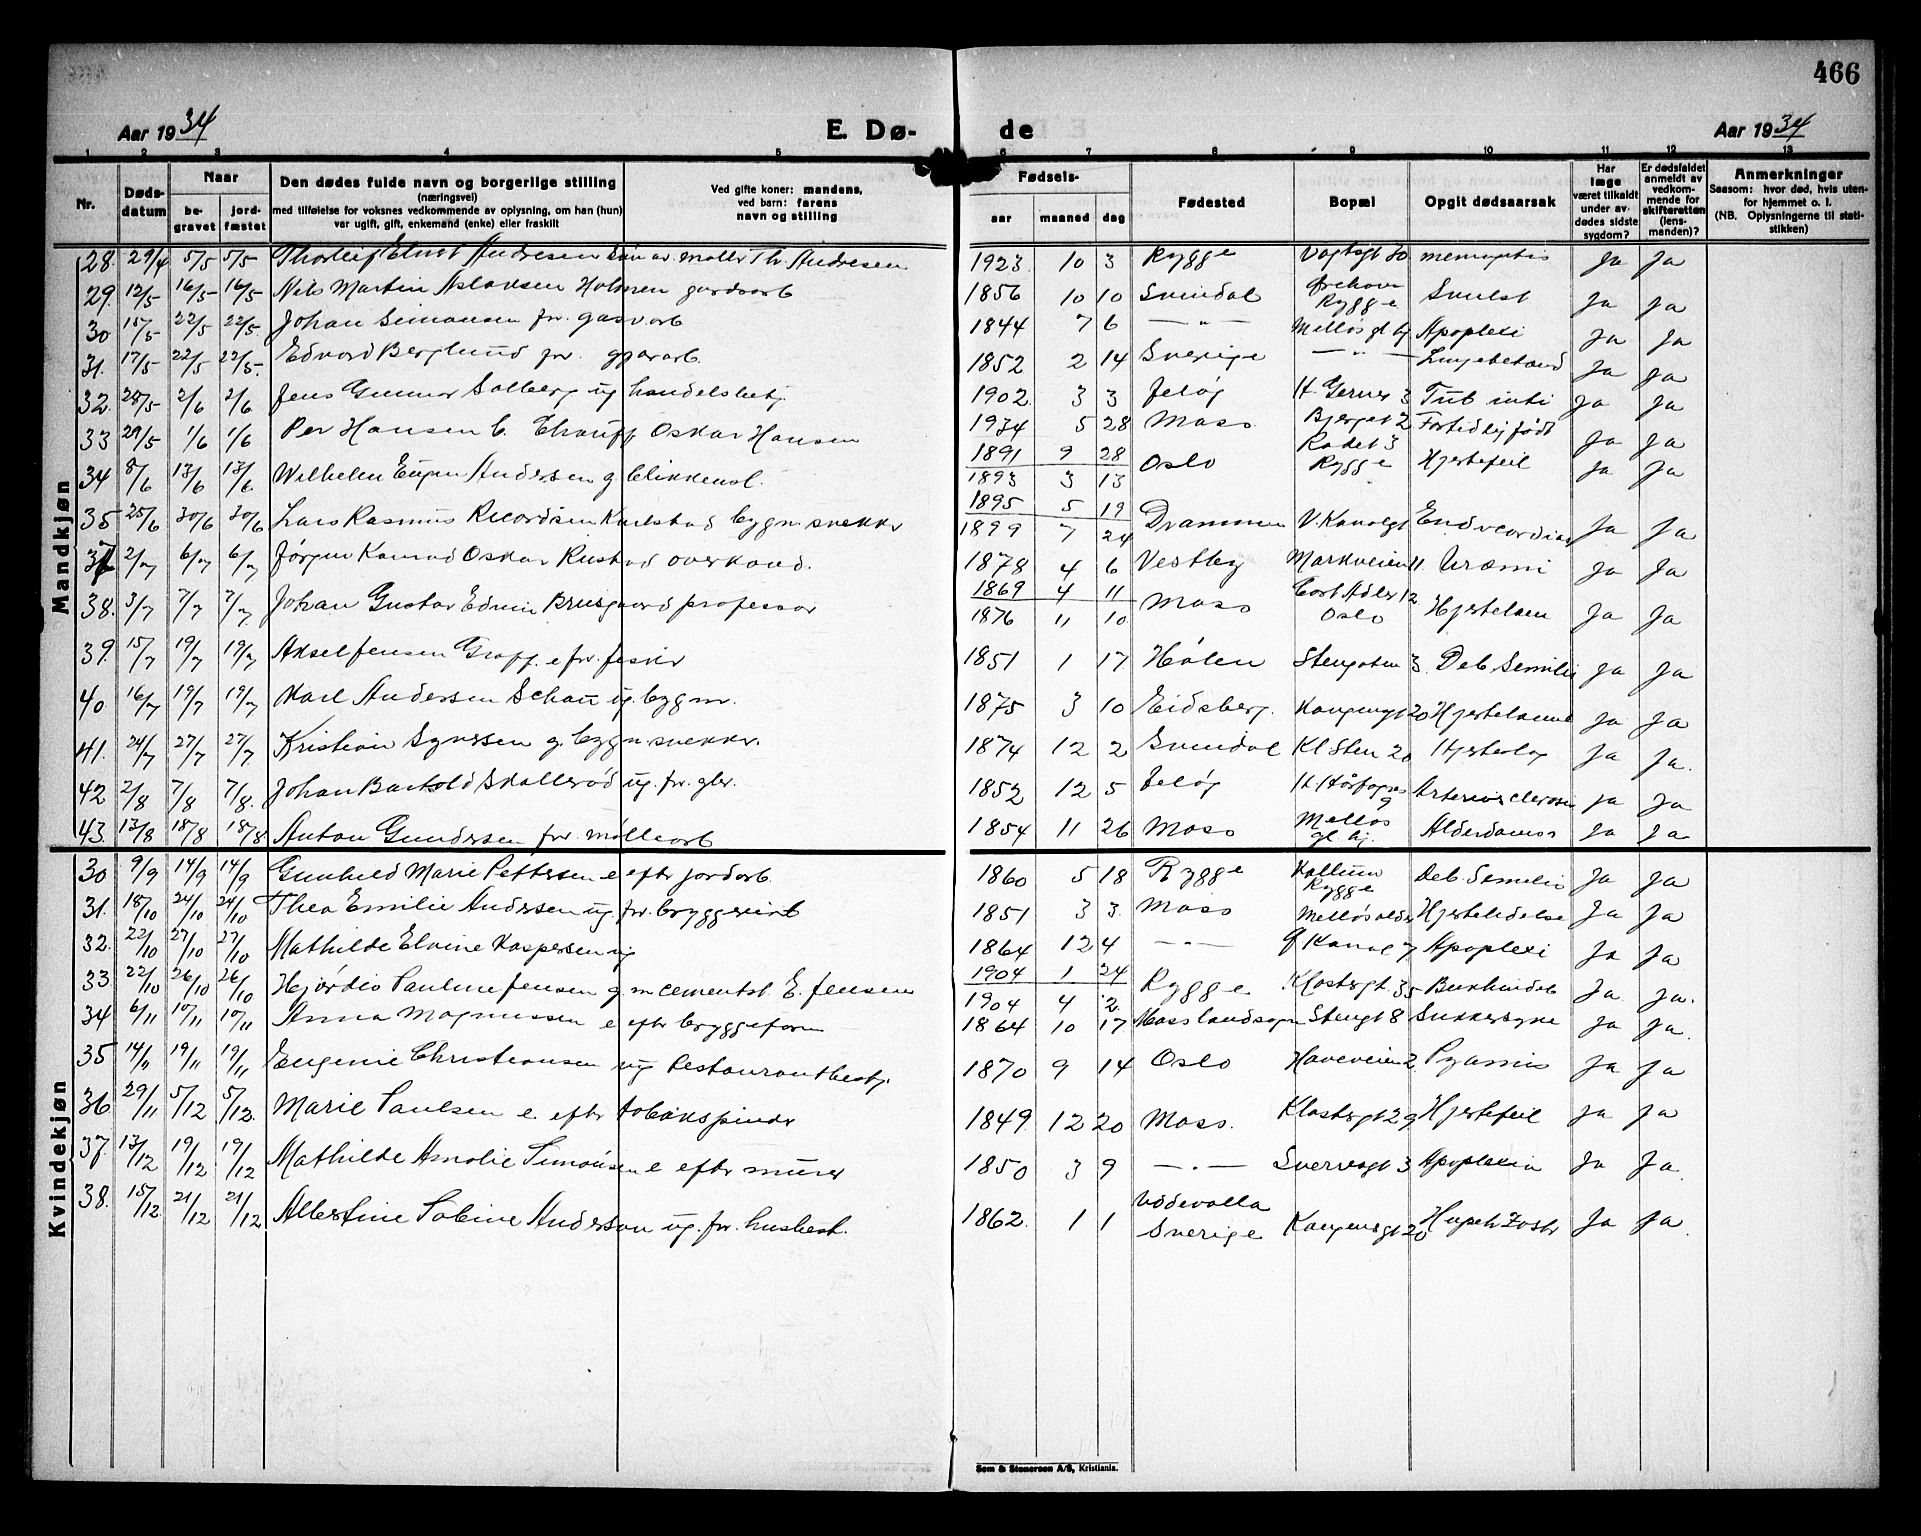 466
Aar 1934
E. Dø-
de
Aar 1934
1 2 3 4 5 6 7 8 9 10 11 12 13
Nr.
Døds-datum
Naar
be-gravet
jord-fæstet
Den dødes fulde navn og borgerlige stilling
(næringsvei)
med tilføielse for voksnes vedkommende av oplysning, om han (hun)
var ugift, gift, enkemand (enke) eller fraskilt
Ved gifte koner: mandens,
ved barn: farens
navn og stilling
Fødsels-
aar maaned dag
Fødested
Bopæl
Opgit dødsaarsak
Har læge været tilkaldt under av-dødes sidste sygdom?
Er dødsfaldet anmeldt av vedkom-mende for skifteretten (lens-manden)?
Anmerkninger
Saasom: hvor død, hvis uten-for hjemmet o. l.
(NB. Oplysningerne til stati-stikken)
Mandkjøn
28. 29/4 5/5 5/5 Thorleif Andresen Søn av Th. Andresen 1923 10 3 Rygge Vogtsgt 30 Ja Ja
29. 12/5 16/5 16/5 Nils Martin Aslaksen Holmen gardsarb 1856 10 10 Svindal Rygge Ja Ja
30 15/5 22/5 22/5 Johan Simonsen fr. gasvarb 1844 7 6 — " — Melløs gl hj Apoplexi Ja Ja
31. 17/5 22/5 22/5 Edvard Berglund fr. 1852 2 14 Sverige — " — Ja Ja
32. 28/5 2/6 2/6 Jens Gunnar Solberg ug handelsbetj. 1902 3 3 Jeløy H. Gerner 3 Tub. Ja Ja
33 29/5 1/6 1/6 Per Hansen b. Chauff Oskar Hansen 1934 5 28 Moss Bjerget 2 Fortidlig født Ja Ja
34 8/6 13/6 13/6 Wilhelm Eugen Andersen g blikkensl. 1891 9 28 1893 3 13 Oslo Rygge Hjertefeil Ja Ja
35 25/6 30/6 30/6 Lars Rasmus Karlstad bygn.snekker 1895 5 19 1899 7 24 Drammen V. Kanalgt Ja Ja
37 2/7 6/7 6/7 Jørgen Konrad Oskar Rustad overkond. 1878 4 6 Vestby Markveien 11. Uræmi Ja Ja
38. 3/7 7/7 7/7 Johan Gustav Edvin Brusgaard professor 1869 4 11 1876 11 10 Moss Cort Adler 12 Oslo Ja Ja
39. 15/7 19/7 19/7 Aksel Jensen e fr. fisker 1851 1 17 Hølen Stengaten 3 Deb. Senilis Ja Ja
40 16/7 19/7 19/7 Karl Andersen Schau ug. bygm. 1875 3 10 Eidsberg. 20 Ja Ja
41. 24/7 27/7 27/7 Kristian Syversen g. bygn snekker. 1874 12 2 Svindal Kl Sten 20 Hjerteslag Ja Ja.
42 2/8 7/8 7/8 Johan Bartold Skallerød ug. fr. 1852 12 5 Jeløy 9 Ja Ja
43. 13/8 18/8 18/8 Anton Gundersen fr møllearb 1854 11 26 Moss Melløs gl hj. Ja Ja
Kvindekjøn
30 9/9 14/9 14/9 Gunhild Marie Pettersen e efter jordarb 1860 5 18 Rygge Kallum Rygge Deb. Senilis Ja Ja
31. 18/10 24/10 24/10 Thea Emilie Andersen ug. fr. 1851 3 3. Moss Ja Ja
32. 22/10 27/10 27/10 Mathilde Elvine Kaspersen ug 1864 12 4 — " — Kanal 7 Apoplexi Ja Ja
33. 22/10 26/10 26/10 Hjørdis Pauline Jensen g m cementst E. Jensen 1904 1 24 1904 4 2 Rygge Klostergt 35 Ja Ja.
34 6/11 10/11 10/11 Anna Magnussen e efter bryggeform 1864 10 17 Moss landsogn Stengt 8 Sukkersyke Ja Ja.
35 14/11 19/11 19/11 Eugenie Christiansen ug Restaurantbest. 1870 9 14 Oslo Haveveien 2 Pyæmi Ja Ja
36 29/11 5/12 5/12. Marie Paulsen e. efter tobakspinder 1849 12 20 Moss. Klostergt 29 Hjertefeil Ja Ja
37. 13/12 19/12 19/12 Mathilde Amalie Simonsen e efter murer 1850 3 9 — " — 3 Apoplexia Ja Ja
38. 15/12. 21/12 21/12 Albertine Sabine Anderson ug. fr. husbest. 1862. 1 1 Uddevalla Sverige 20 Ja Ja
Sem & Stenersen A/S, Kristiania.